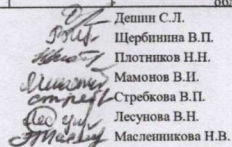 Дешин С.Л.
Щербинина В.П.
Плотников Н.Н.
Мамонов В.И.
Стребкова В.П.
Лесунова В.Н.
Масленникова Н.В.